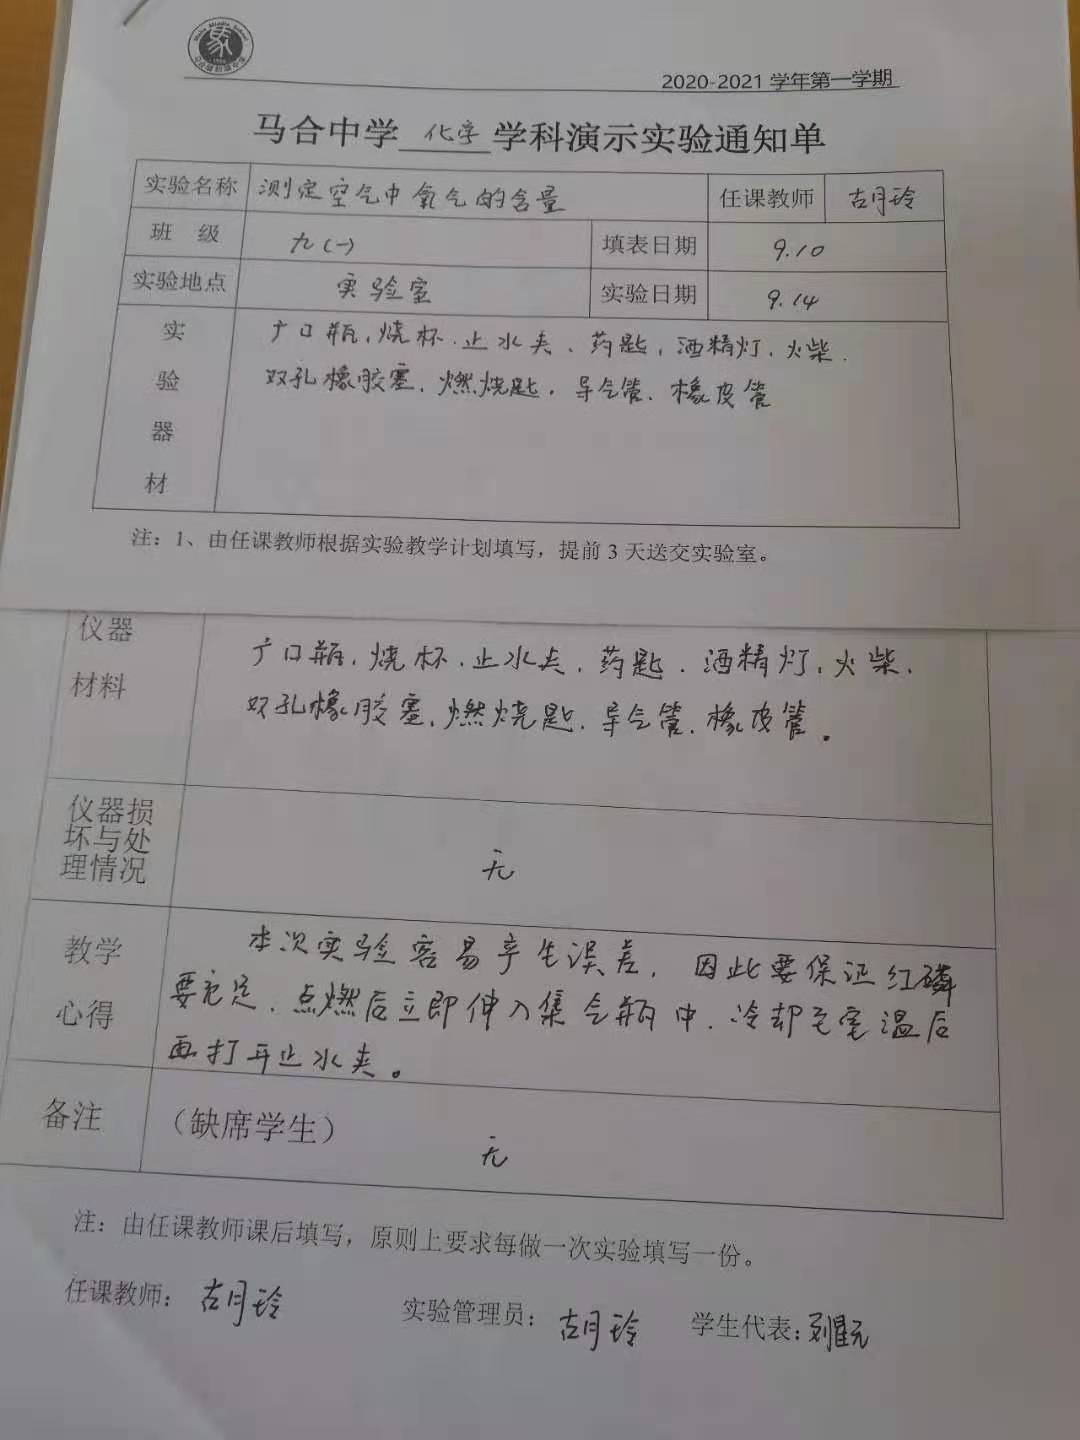 2020-2021 学年第一学期
马合中学 化学 学科演示实验通知单
实验名称 测定空气中氧气的含量 任课教师 胡玲
班 级 九(一) 填表日期 9.10
实验地点 实验室 实验日期 9.14
实验器材 广口瓶,烧杯.止水夹、药匙,酒精灯.火柴.
双孔橡胶塞.燃烧匙.导气管.橡皮管
注:1、由任课教师根据实验教学计划填写,提前 3 天送交实验室。
仪器材料 广口瓶.烧杯.止水夹.药匙.酒精灯.火柴.
双孔橡胶塞.燃烧匙.导气管.橡皮管。
仪器损坏与处理情况 无
教学心得 本次实验容易产生误差,因此要保证红磷
要充足.点燃后立即伸入集气瓶中.冷却至室温后
再打开止水夹。
备注 (缺席学生)
无
注:由任课教师课后填写,原则上要求每做一次实验填写一份。
任课教师: 胡玲 实验管理员: 胡玲 学生代表: